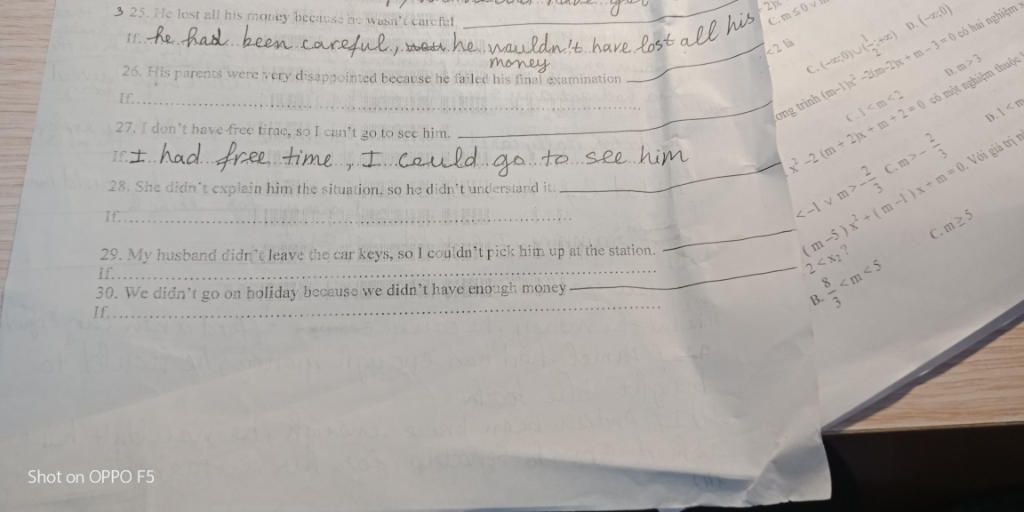 3 25. He lost all his money because he wasn't careful
If he had been careful, he wouldn't have lost all his
money
26. His parents were very disappointed because he failed his final examination
If
27. I don't have free time, so I can't go to see him.
If I had free time, I could go to see him
28. She didn't explain him the situation, so he didn't understand it.
If
29. My husband didn't leave the car keys, so I couldn't pick him up at the station.
If
30. We didn't go on holiday because we didn't have enough money
If
C. m ≤ 0
<2 là
C. (-∞;0)∪(1/2;+∞) D. (-∞;0)
ơng trình (m-1)x² -2(m-2)x + m - 3 = 0 có hai nghiệm
C. 1<m<2 D. m>3
x² -2(m+2)x + m + 2 = 0 có một nghiệm thuộc
<-1 ∨ m>-2/3 C. m>-2/3 D. 1<m
(m-5)x² + (m-1)x + m = 0. Với giá trị
2<x₂?
B. 8/3<m<5 C. m≥5
Shot on OPPO F5